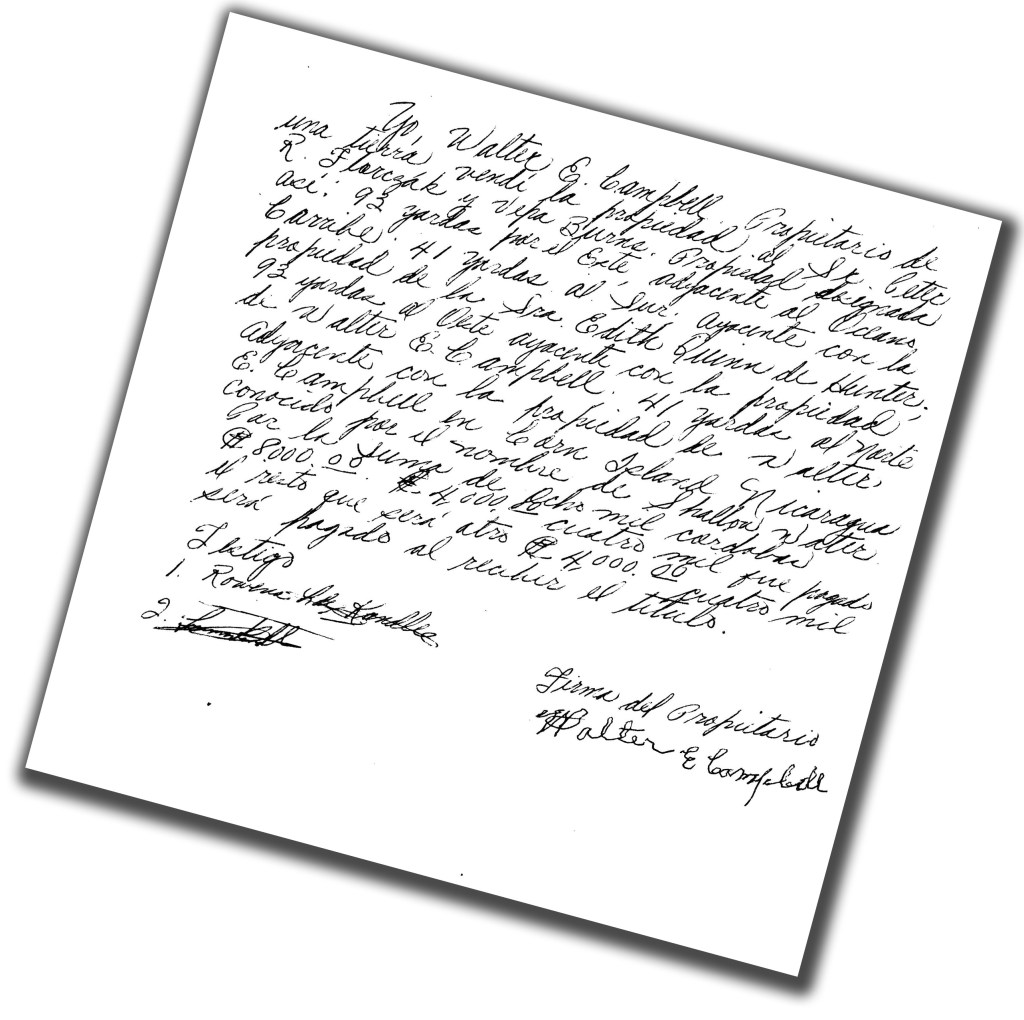 Yo, Walter E. Campbell Propietario de
una tierra, vendi la propiedad al Sr. Peter
R. Florczak y Vepa Burns. Propiedad
asi: 93 yardas por el Este, adjacente al Oceano
Carribe. 41 yardas al Sur, ayacente con la
propiedad de la Sra. Edith Quinn de Hunter.
93 yardas al Oste ayacente con la propiedad
de Walter E. Campbell. 41 yardas al Norte
adyacente con la propiedad de Walter
E. Campbell en Corn Island Nicaragua
conocido por el nombre de Shallow Water.
Por la suma de Ocho mil cordobas
₡ 8000.00 ₡ 4,000.00 cuatro mil fue pagado
el resto que será otro ₡ 4,000.00 cuatro mil
será pagado al recibir el titulo.
Testigo
1. Rowena
2.
Firma del Propietario
Walter E Campbell